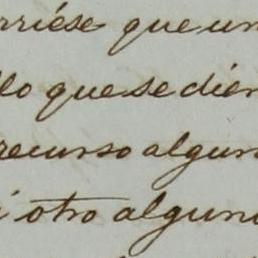 rriése que un
llo que se dier
recurso algun
i otro alguno